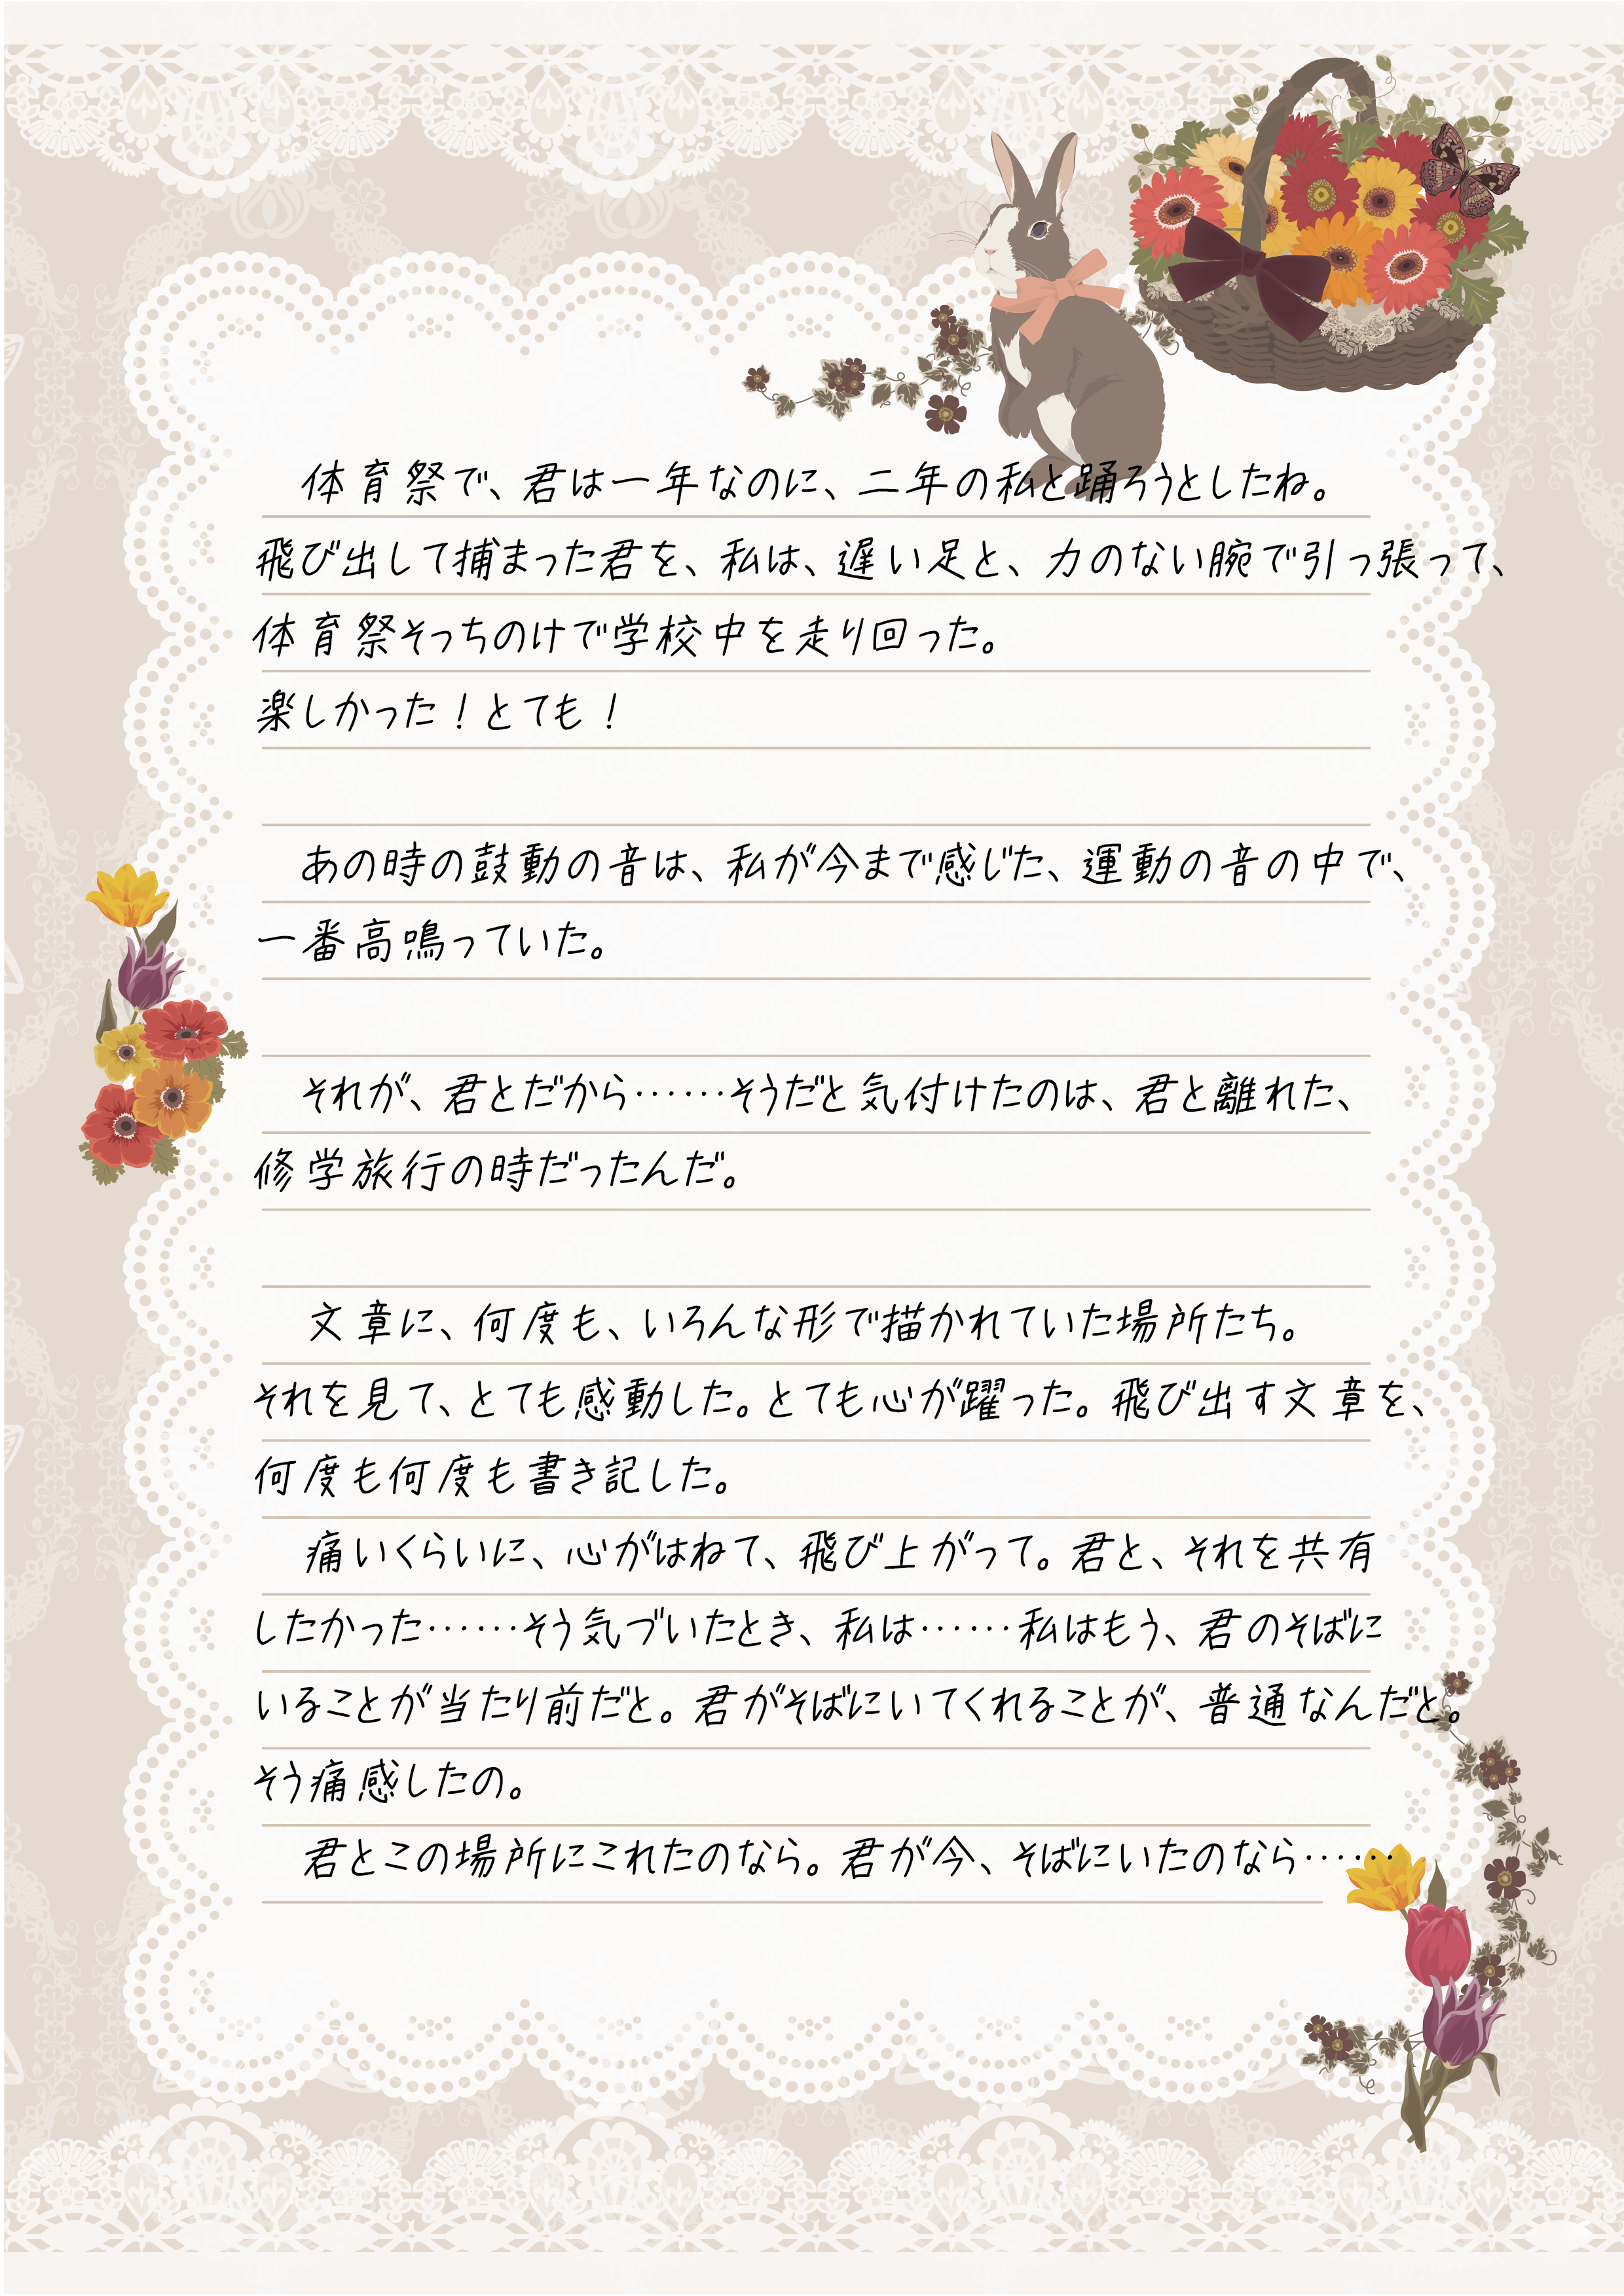 体育祭で、君は一年なのに、二年の私と踊ろうとしたね。
飛び出して捕まった君を、私は、遅い足と、力のない腕で引っ張って、
体育祭そっちのけで学校中を走り回った。
楽しかった！とても！
あの時の鼓動の音は、私が今まで感じた、運動の音の中で、
一番高鳴っていた。
それが、君とだから……そうだと気付けたのは、君と離れた、
修学旅行の時だったんだ。
文章に、何度も、いろんな形で描かれていた場所たち。
それを見て、とても感動した。とても心が躍った。飛び出す文章を、
何度も何度も書き記した。
痛いくらいに、心がはねて、飛び上がって。君と、それを共有
したかった……そう気づいたとき、私は……私はもう、君のそばに
いることが当たり前だと。君がそばにいてくれることが、普通なんだと。
そう痛感したの。
君とこの場所にこれたのなら。君が今、そばにいたのなら……